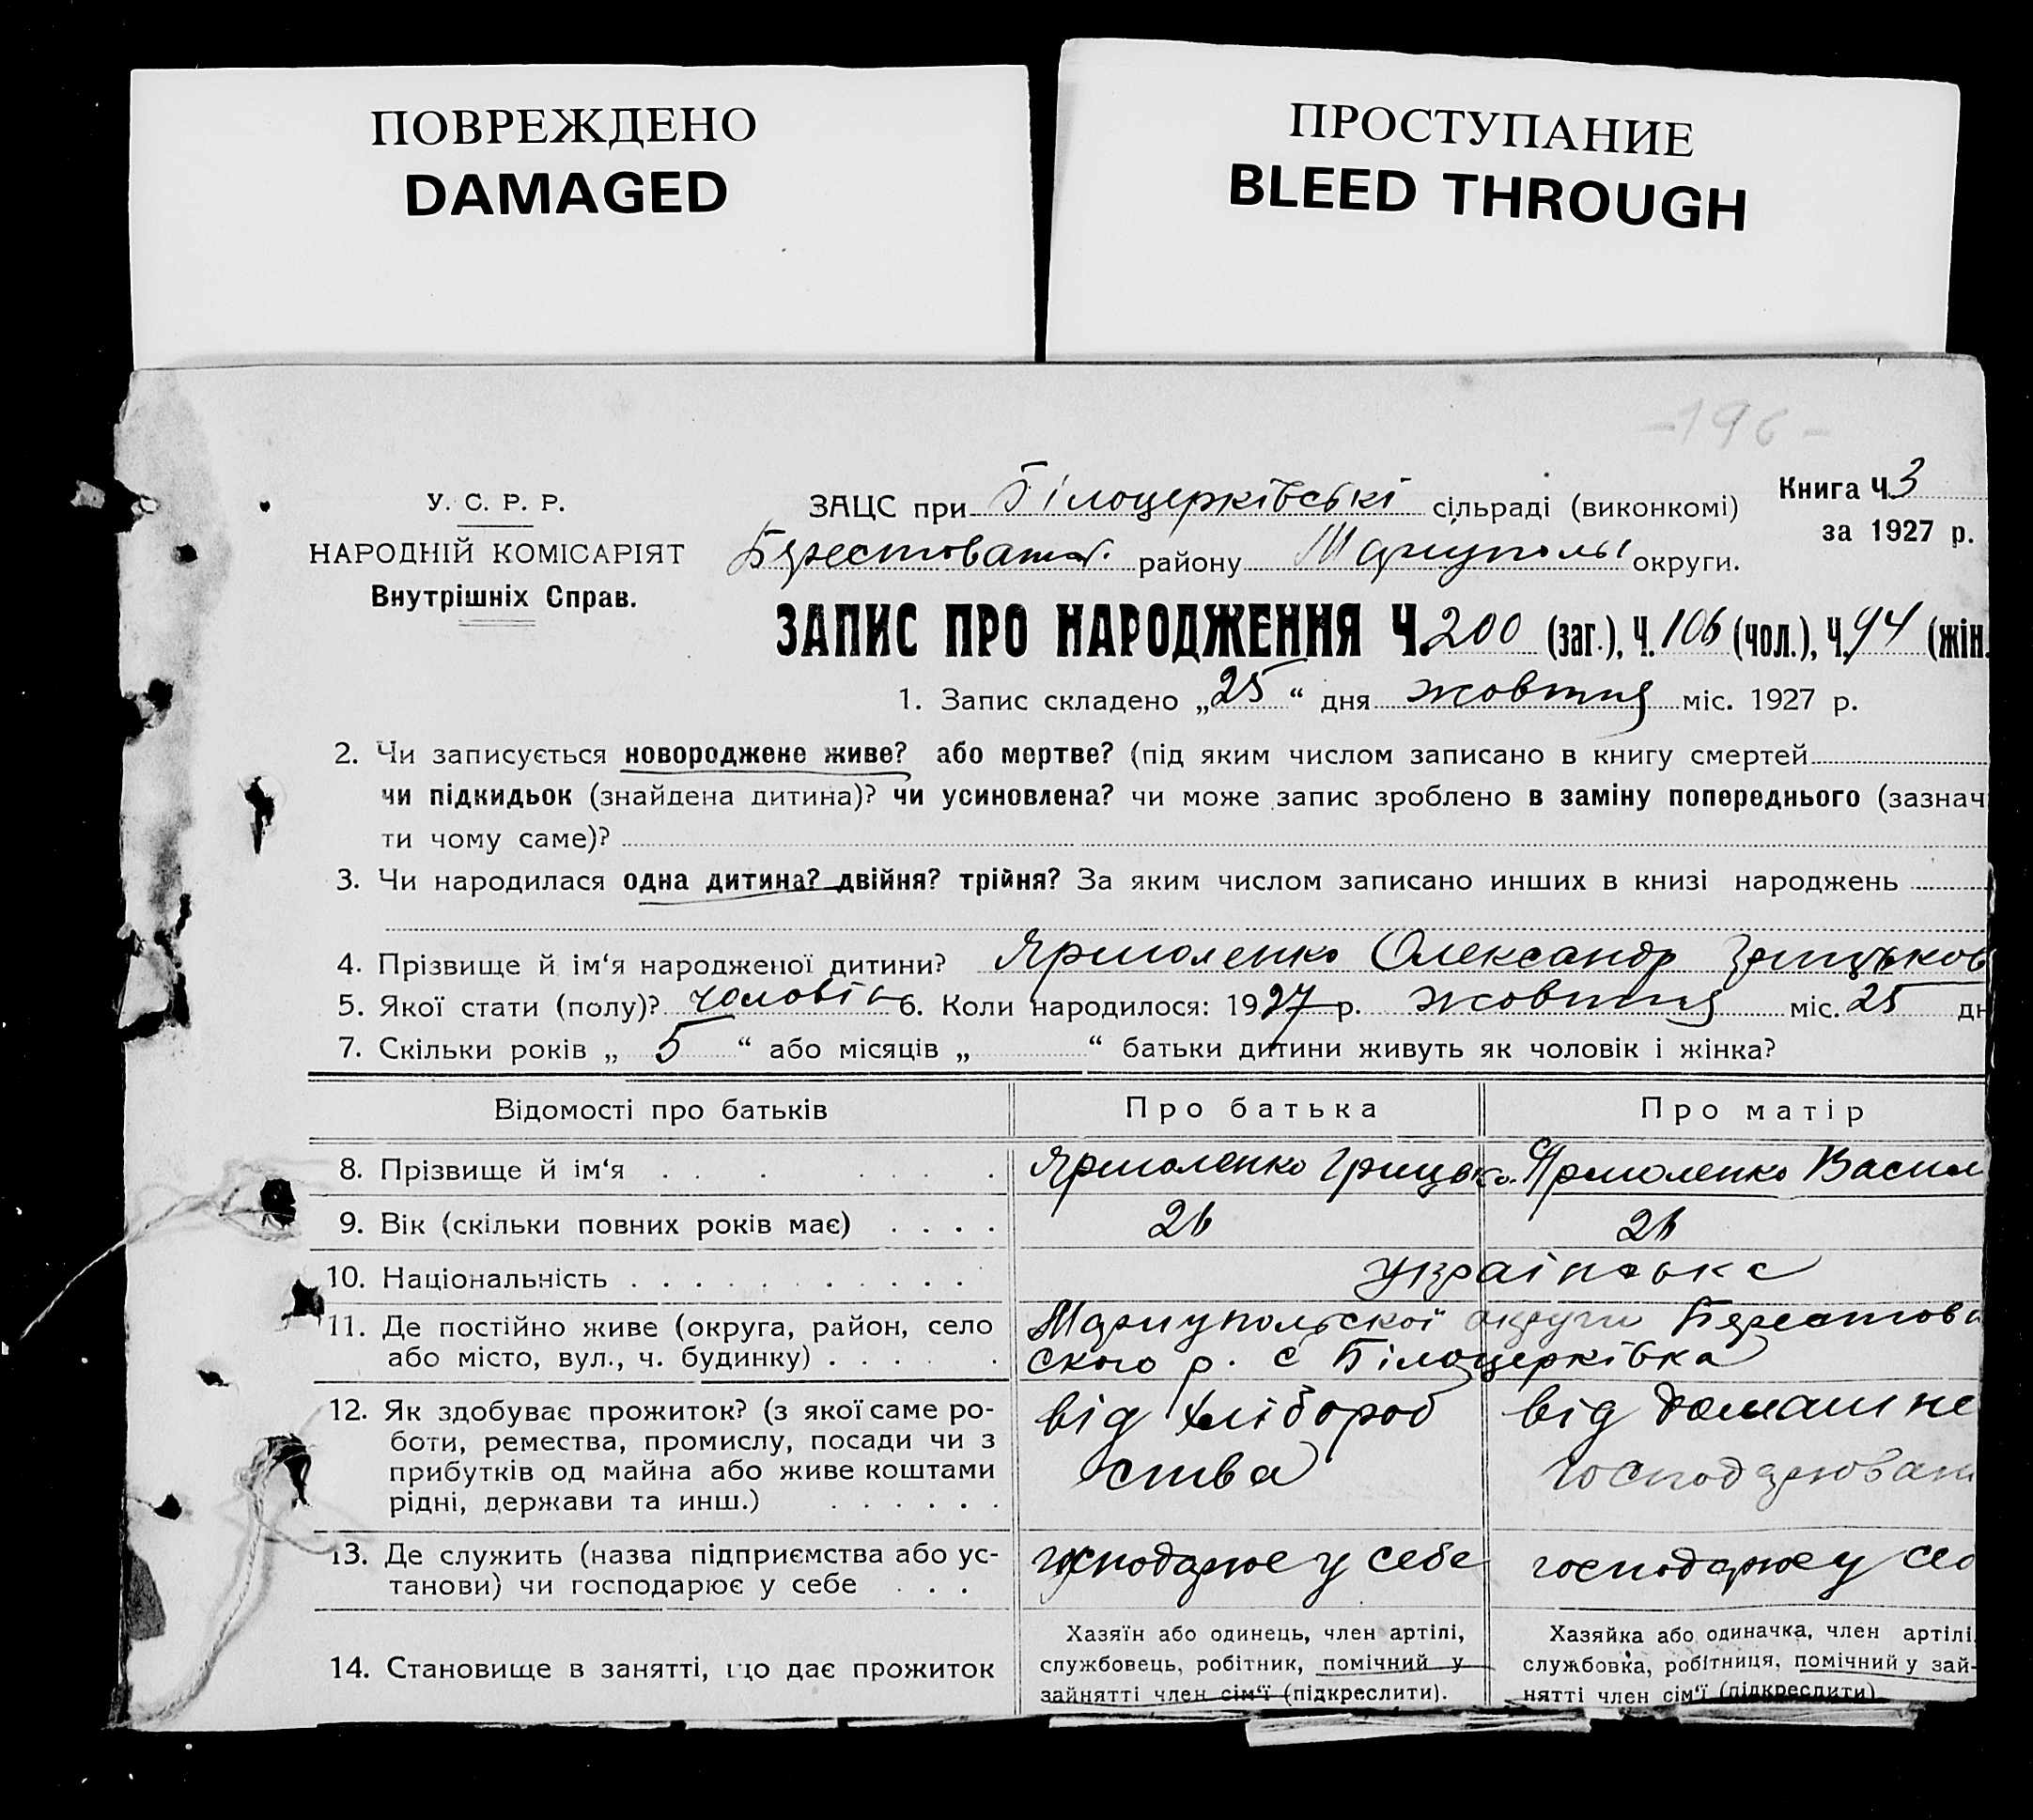 ПОВРЕЖДЕНО
DAMAGED
ПРОСТУПАНИЕ
BLEED THROUGH
-196-
У. С. Р. Р.
НАРОДНІЙ КОМІСАРІЯТ
Внутрішніх Справ.
ЗАЦС при Білоцерківські сільраді (виконкомі)
Берестоват. району Маріупольі округи.
Книга Ч 3
за 1927 р.
ЗАПИС ПРО НАРОДЖЕННЯ Ч. 200 (заг.), Ч. 106 (чол.), Ч. 94 (жін.
1. Запис складено „25“ дня жовтня міс. 1927 р.
2. Чи записується новороджене живе? або мертве? (під яким числом записано в книгу смертей
чи підкидьок (знайдена дитина)? чи усиновлена? чи може запис зроблено в заміну попереднього (зазнач
ти чому саме)?
3. Чи народилася одна дитина? двійня? трійня? За яким числом записано инших в книзі народжень
4. Прізвище й ім‘я народженої дитини? Ярмоленко Олександр Грицьков
5. Якої стати (полу)? чоловік 6. Коли народилося: 1927 р. жовтня міс. 25 дн
7. Скільки років „ 5 “ або місяців „ “ батьки дитини живуть як чоловік і жінка?
Відомості про батьків Про батька Про матір
8. Прізвище й ім‘я . . . . . . Ярмоленко Грицько. Ярмоленко Васил
9. Вік (скільки повних років має) . . . . 26 26
10. Національність . . . . . . . . . . українське
11. Де постійно живе (округа, район, село Мариупольскої округи Берестова
або місто, вул., ч. будинку) . . . . . ского р. с Білоцерківка
12. Як здобуває прожиток? (з якої саме ро- від хлібороб від домашне
боти, ремества, промислу, посади чи з
прибутків од майна або живе коштами ства господарюван
рідні, держави та инш.) . . . . . .
13. Де служить (назва підприємства або ус- господарює у себе господарює у себ
танови) чи господарює у себе . . .
Хазяїн або одинець, член артілі, Хазяйка або одиначка, член артілі,
14. Становище в занятті, що дає прожиток службовець, робітник, помічний у службовка, робітниця, помічний у зай-
зайнятті член сім‘ї (підкреслити). нятті член сім‘ї (підкреслити)